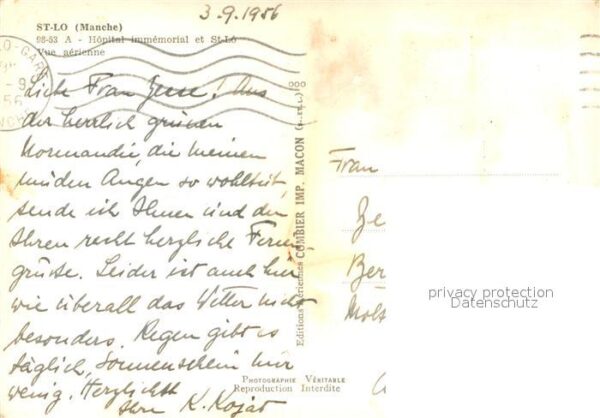 3.9.1956
ST-LO (Manche)
98-53 A - Hôpital immémorial et St-Lô
Vue aérienne
Liebe Frau ! Aus
der herrlich grünen
Normandie, die meinen
müden Augen so wohltut,
sende ich Ihnen und den
Ihren recht herzliche Ferien-
grüsse. Leider ist auch hier
wie überall das Wetter nicht
besonders. Regen gibt es
täglich, Sonnenschein nur
wenig. Herzlichst
Ihre K.
Editions aériennes COMBIER IMP. MACON
PHOTOGRAPHIE VÉRITABLE
Reproduction Interdite
Frau
Ze
Ber
Molt
privacy protection
Datenschutz